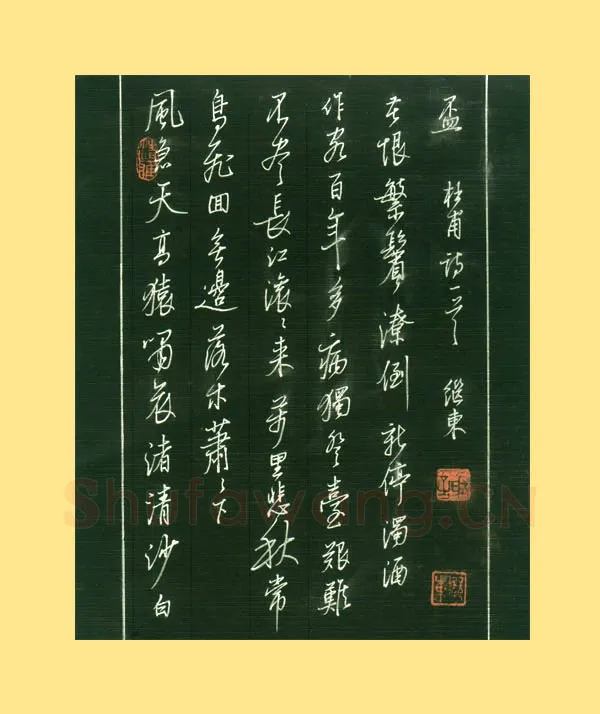 風急天高猿嘯哀渚清沙白
鳥飛回無邊落木蕭々下
不盡長江滾々來萬里悲秋常
作客百年多病獨登臺艱難
苦恨繁鬢潦倒新停濁酒
盃 杜甫詩一首 继東
Shufawang.CN